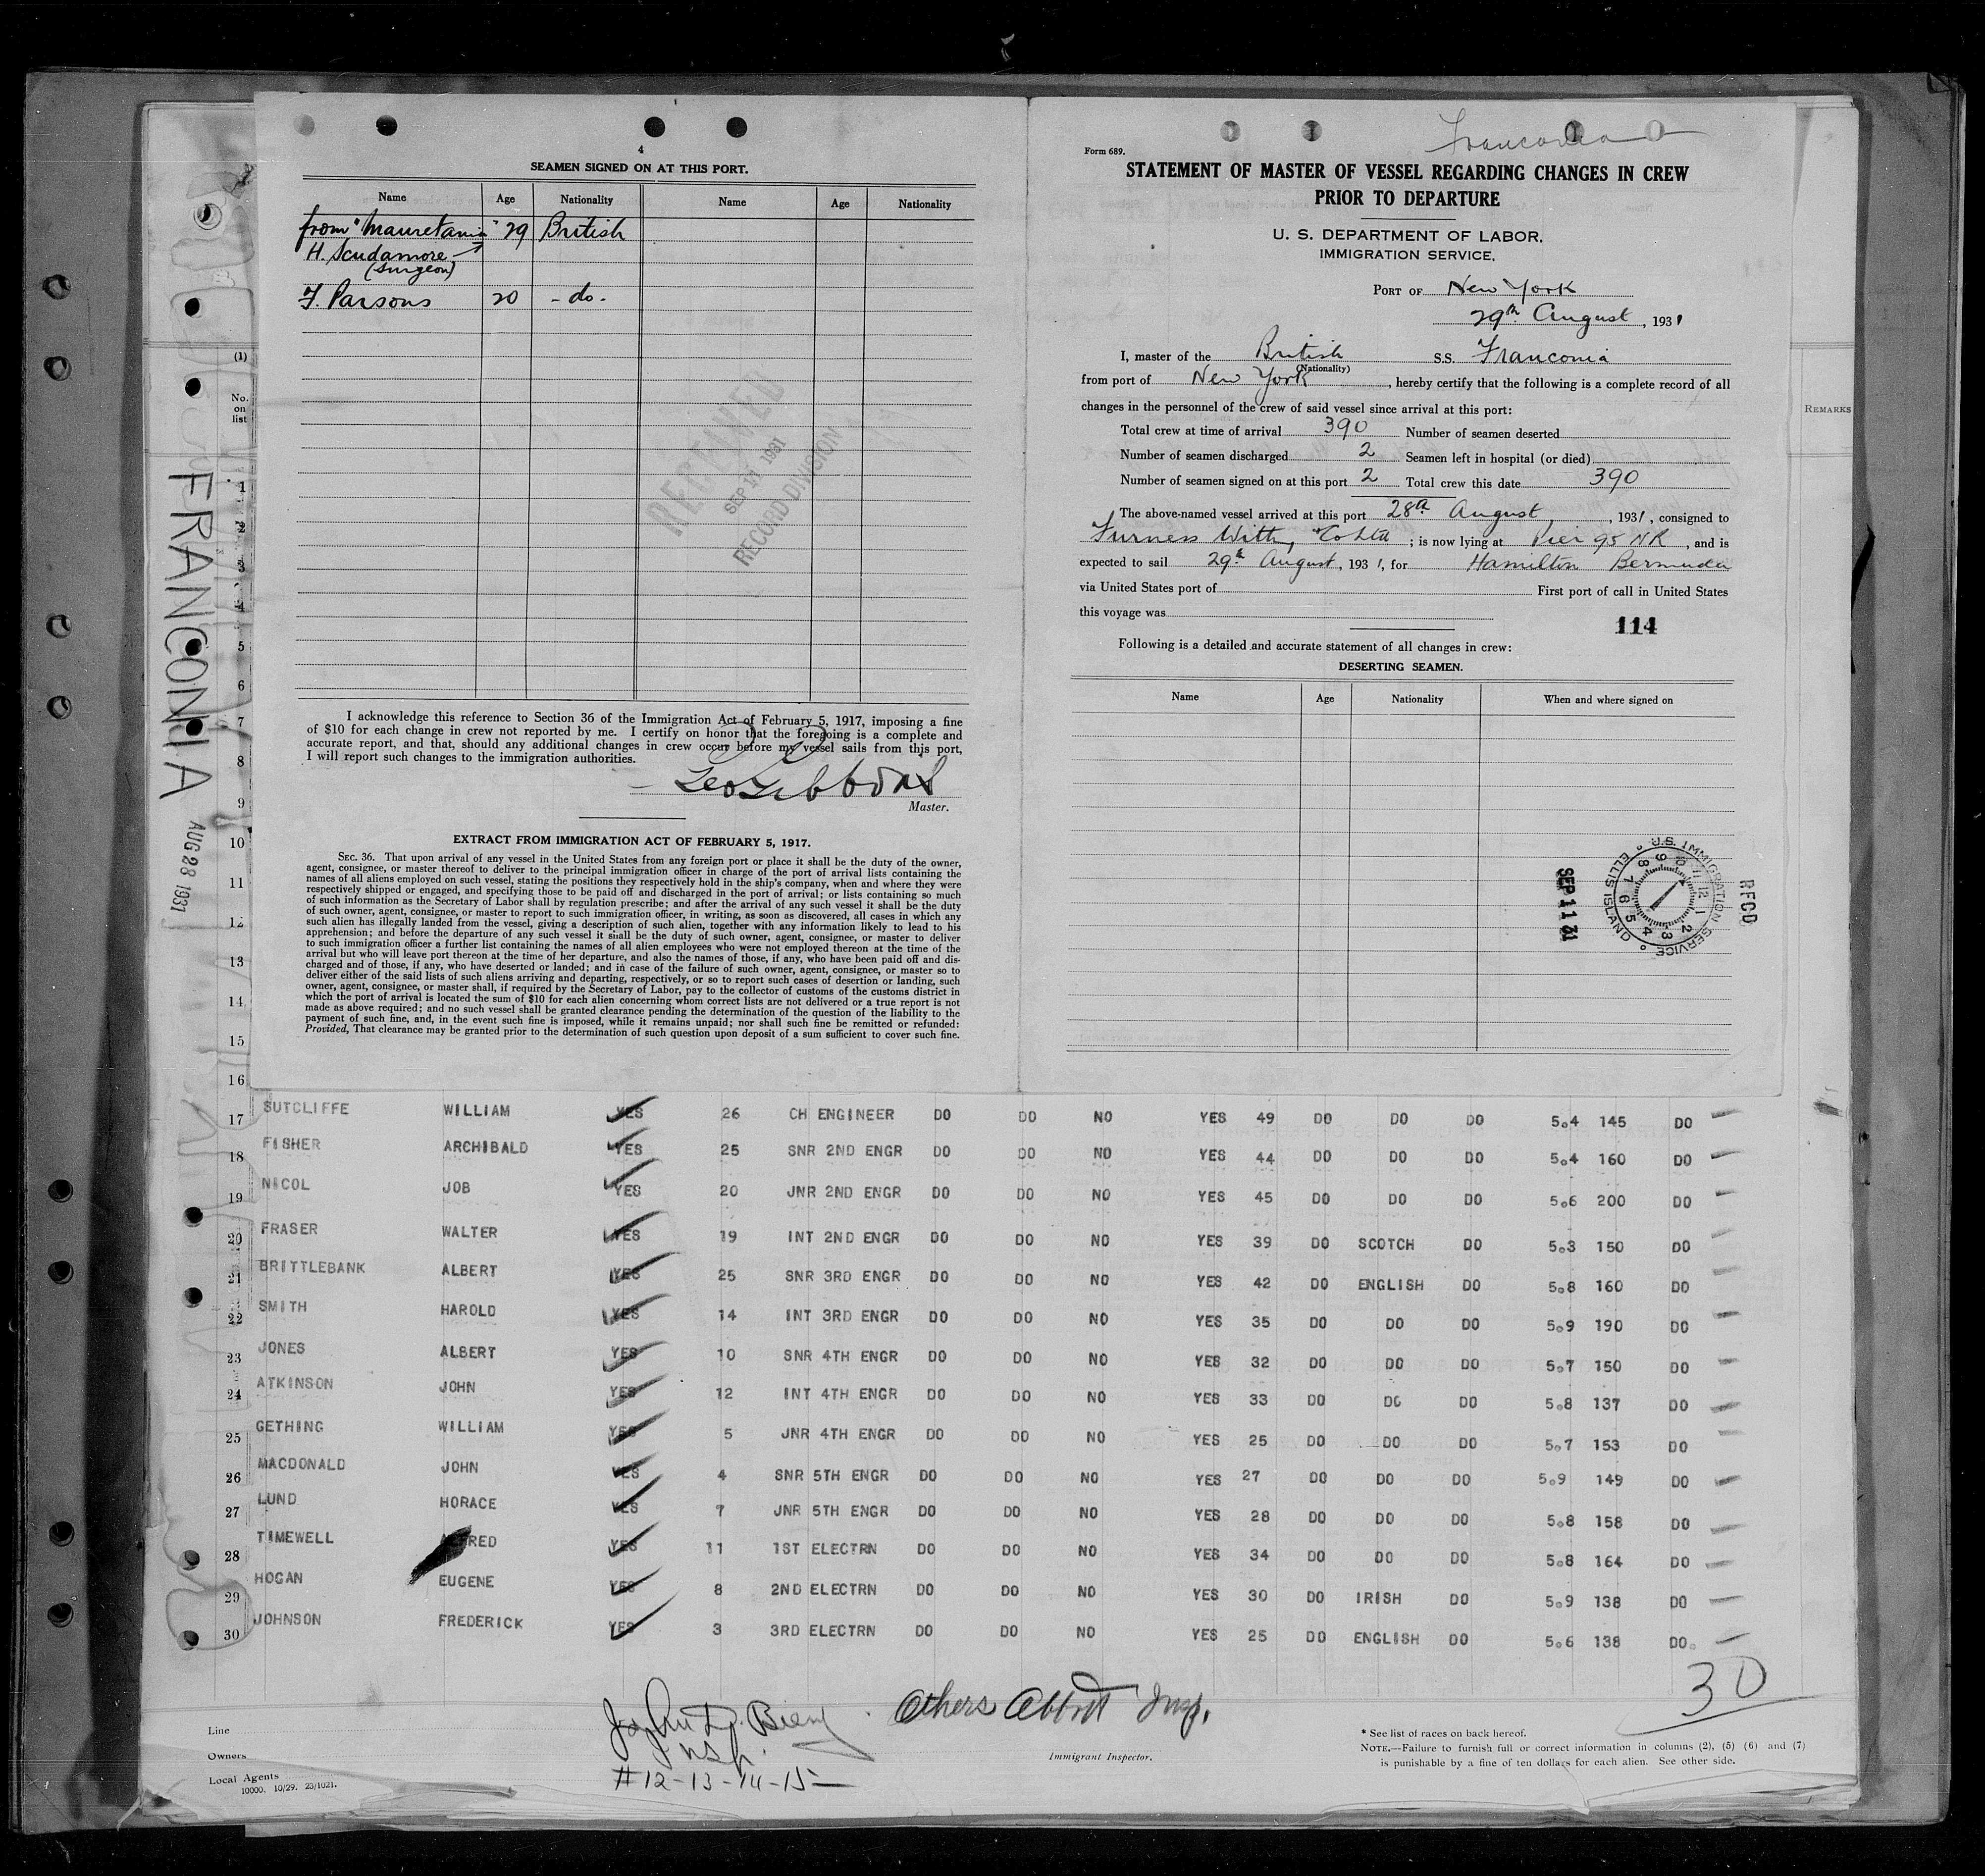 4
SEAMEN SIGNED ON AT THIS PORT.
Name Age Nationality Name Age Nationality
from "Mauretania" 29 British
H. Scudamore
(surgeon)
F. Parsons 20 - do -
RECEIVED
SEP 17 1931
RECORD DIVISION
I acknowledge this reference to Section 36 of the Immigration Act of February 5, 1917, imposing a fine
of $10 for each change in crew not reported by me. I certify on honor that the foregoing is a complete and
accurate report, and that, should any additional changes in crew occur before my vessel sails from this port,
I will report such changes to the immigration authorities.
Geo Gibbons
Master.
EXTRACT FROM IMMIGRATION ACT OF FEBRUARY 5, 1917.
SEC. 36. That upon arrival of any vessel in the United States from any foreign port or place it shall be the duty of the owner,
agent, consignee, or master thereof to deliver to the principal immigration officer in charge of the port of arrival lists containing the
names of all aliens employed on such vessel, stating the positions they respectively hold in the ship's company, when and where they were
respectively shipped or engaged, and specifying those to be paid off and discharged in the port of arrival; or lists containing so much
of such information as the Secretary of Labor shall by regulation prescribe; and after the arrival of any such vessel it shall be the duty
of such owner, agent, consignee, or master to report to such immigration officer, in writing, as soon as discovered, all cases in which any
such alien has illegally landed from the vessel, giving a description of such alien, together with any information likely to lead to his
apprehension; and before the departure of any such vessel it shall be the duty of such owner, agent, consignee, or master to deliver
to such immigration officer a further list containing the names of all alien employees who were not employed thereon at the time of the
arrival but who will leave port thereon at the time of her departure, and also the names of those, if any, who have been paid off and dis-
charged and of those, if any, who have deserted or landed; and in case of the failure of such owner, agent, consignee, or master so to
deliver either of the said lists of such aliens arriving and departing, respectively, or so to report such cases of desertion or landing, such
owner, agent, consignee, or master shall, if required by the Secretary of Labor, pay to the collector of customs of the customs district in
which the port of arrival is located the sum of $10 for each alien concerning whom correct lists are not delivered or a true report is not
made as above required; and no such vessel shall be granted clearance pending the determination of the question of the liability to the
payment of such fine, and, in the event such fine is imposed, while it remains unpaid; nor shall such fine be remitted or refunded:
Provided, That clearance may be granted prior to the determination of such question upon deposit of a sum sufficient to cover such fine.
Franconia
Form 689.
STATEMENT OF MASTER OF VESSEL REGARDING CHANGES IN CREW
PRIOR TO DEPARTURE
U. S. DEPARTMENT OF LABOR,
IMMIGRATION SERVICE,
PORT OF New York
29th August, 1931
I, master of the British S.S. Franconia
(Nationality)
from port of New York, hereby certify that the following is a complete record of all
changes in the personnel of the crew of said vessel since arrival at this port:
Total crew at time of arrival 390 Number of seamen deserted
Number of seamen discharged 2 Seamen left in hospital (or died)
Number of seamen signed on at this port 2 Total crew this date 390
The above-named vessel arrived at this port 28th August, 1931, consigned to
Furness Withy & Co Ltd; is now lying at Pier 95 NR, and is
expected to sail 29th August, 1931, for Hamilton Bermuda
via United States port of First port of call in United States
this voyage was
114
Following is a detailed and accurate statement of all changes in crew:
DESERTING SEAMEN.
Name Age Nationality When and where signed on
REC'D
U.S. IMMIGRATION SERVICE
ELLIS ISLAND
SEP 11 31
REMARKS
FRANCONIA
AUG 28 1931
(1)
No.
on
list
1
2
3
4
5
6
7
8
9
10
11
12
13
14
15
16
17 SUTCLIFFE WILLIAM YES 26 CH ENGINEER DO DO NO YES 49 DO DO DO 5.4 145 DO
18 FISHER ARCHIBALD YES 25 SNR 2ND ENGR DO DO NO YES 44 DO DO DO 5.4 160 DO
19 NICOL JOB YES 20 JNR 2ND ENGR DO DO NO YES 45 DO DO DO 5.6 200 DO
20 FRASER WALTER YES 19 INT 2ND ENGR DO DO NO YES 39 DO SCOTCH DO 5.3 150 DO
21 BRITTLEBANK ALBERT YES 25 SNR 3RD ENGR DO DO NO YES 42 DO ENGLISH DO 5.8 160 DO
22 SMITH HAROLD YES 14 INT 3RD ENGR DO DO NO YES 35 DO DO DO 5.9 190 DO
23 JONES ALBERT YES 10 SNR 4TH ENGR DO DO NO YES 32 DO DO DO 5.7 150 DO
24 ATKINSON JOHN YES 12 INT 4TH ENGR DO DO NO YES 33 DO DO DO 5.8 137 DO
25 GETHING WILLIAM YES 5 JNR 4TH ENGR DO DO NO YES 25 DO DO DO 5.7 153 DO
26 MACDONALD JOHN YES 4 SNR 5TH ENGR DO DO NO YES 27 DO DO DO 5.9 149 DO
27 LUND HORACE YES 7 JNR 5TH ENGR DO DO NO YES 28 DO DO DO 5.8 158 DO
28 TIMEWELL ALFRED YES 11 1ST ELECTRN DO DO NO YES 34 DO DO DO 5.8 164 DO
29 HOGAN EUGENE YES 8 2ND ELECTRN DO DO NO YES 30 DO IRISH DO 5.9 138 DO
30 JOHNSON FREDERICK YES 3 3RD ELECTRN DO DO NO YES 25 DO ENGLISH DO 5.6 138 DO.
30
John Insp.
#12-13-14-15
Others Abbott Insp.
Immigrant Inspector.
Line
Owners
Local Agents
10000. 10/29. 23/1021.
* See list of races on back hereof.
NOTE.—Failure to furnish full or correct information in columns (2), (5) (6) and (7)
is punishable by a fine of ten dollars for each alien. See other side.